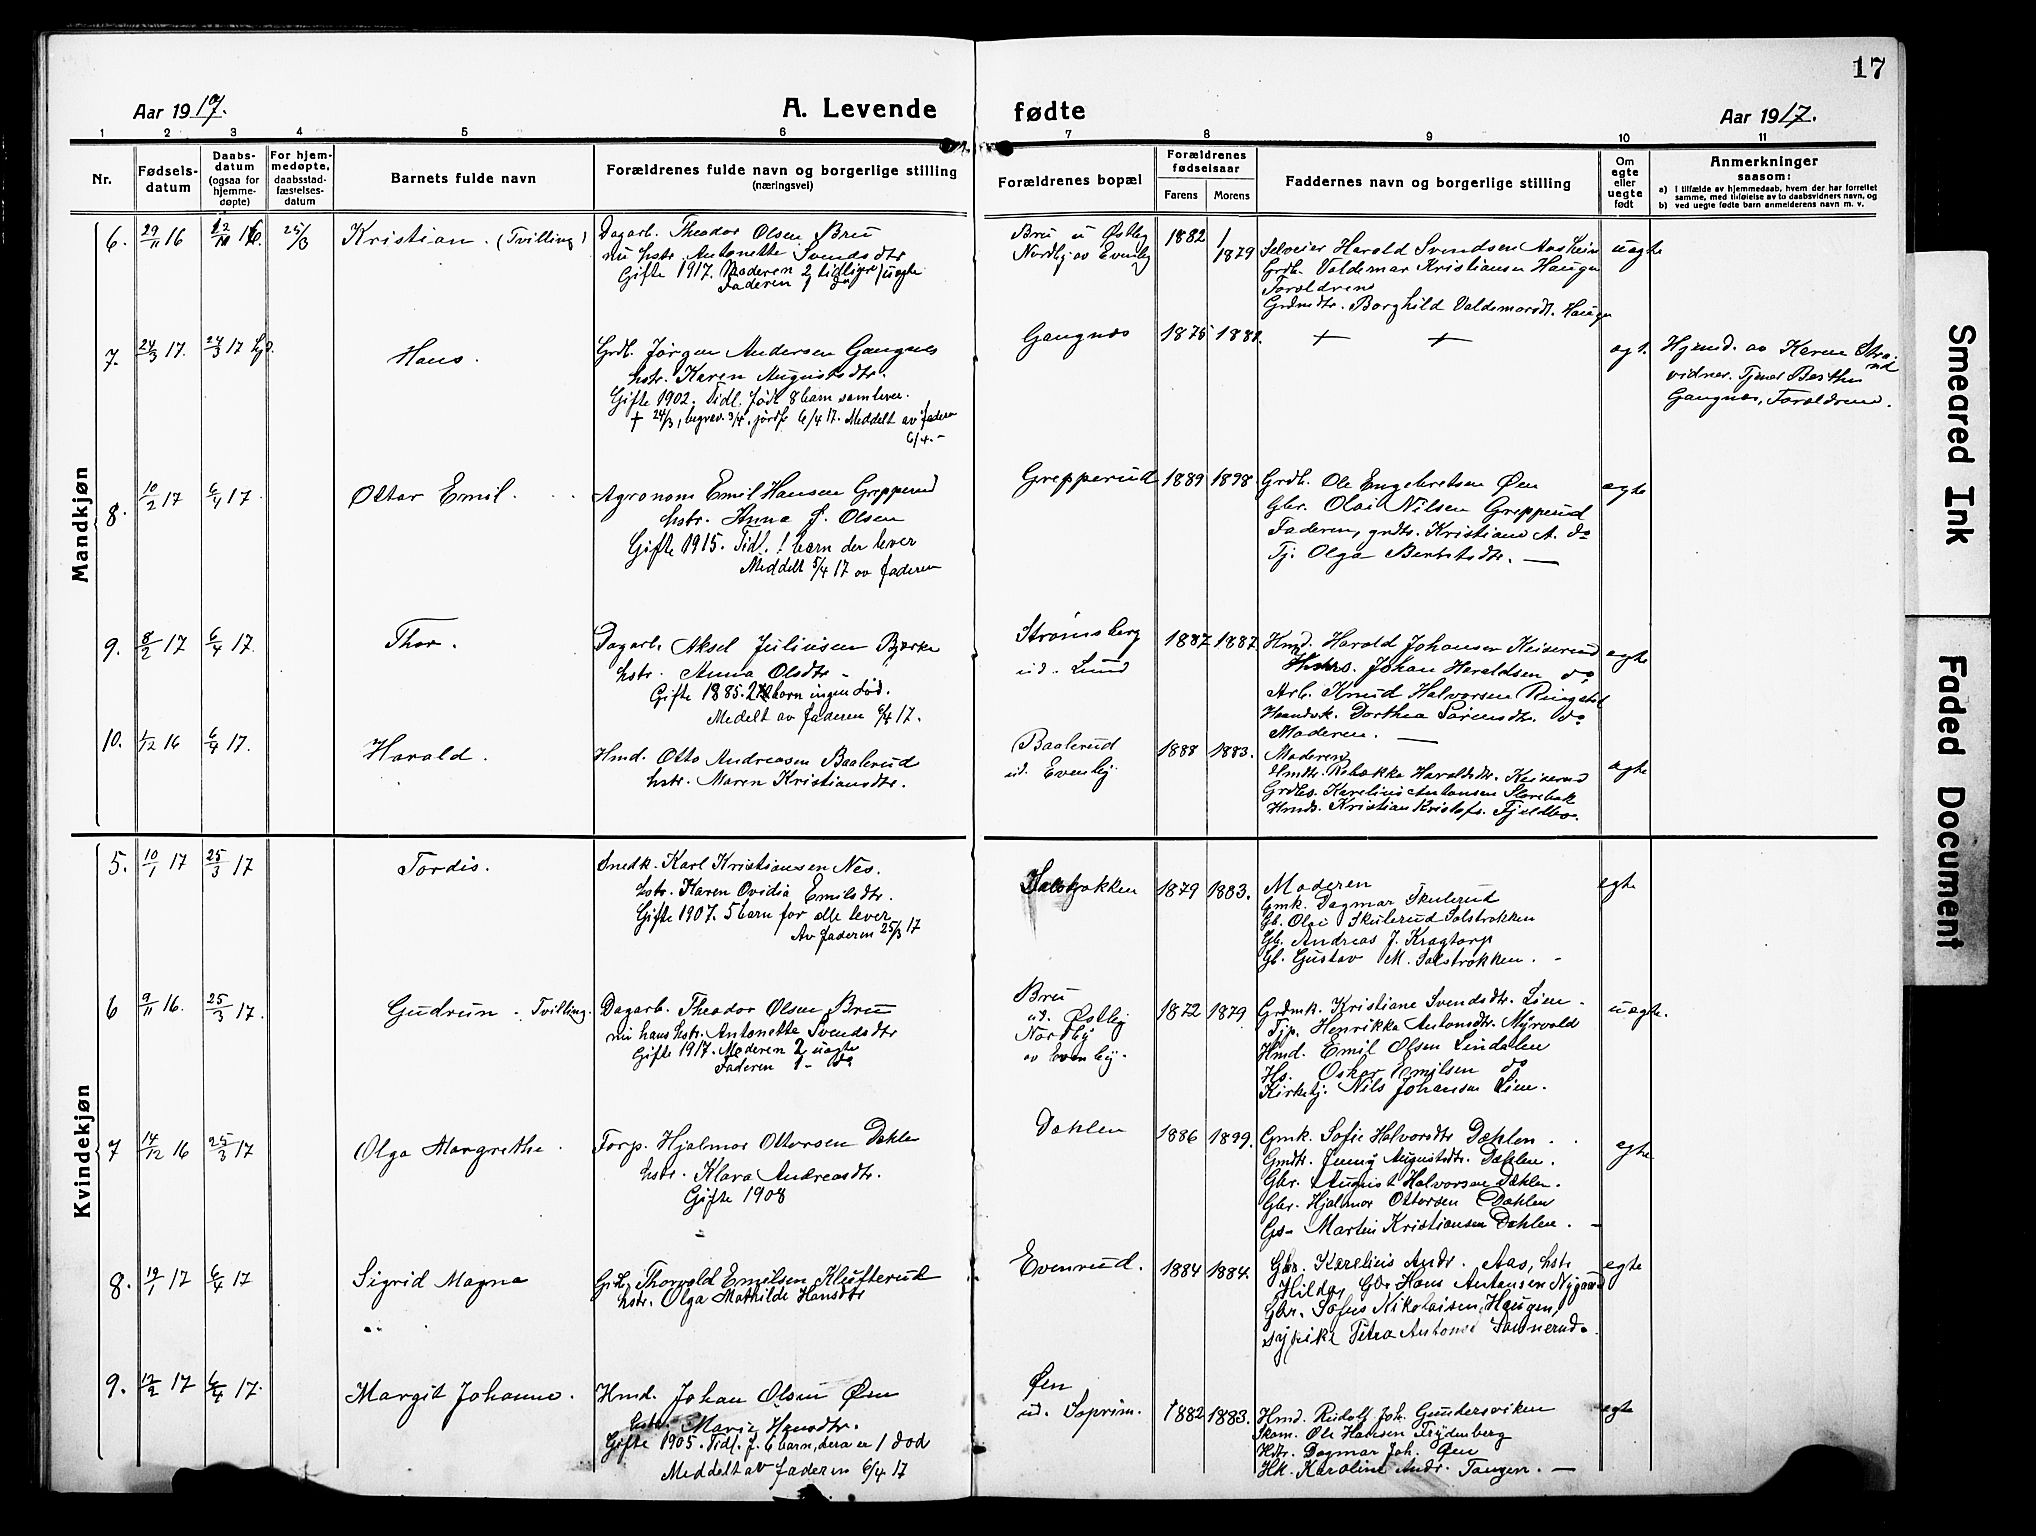 17
Aar 1917.
A. Levende
fødte
Aar 1917.
1 2 3 4 5 6 7 8 9 10 11
Nr.
Fødsels-
datum
Daabs-
datum
(ogsaa for
hjemme-
døpte)
For hjem-
medøpte,
daabsstad-
fæstelses-
datum
Barnets fulde navn
Forældrenes fulde navn og borgerlige stilling
(næringsvei)
Forældrenes bopæl
Forældrenes
fødselsaar
Farens
Morens
Faddernes navn og borgerlige stilling
Om
egte
eller
uegte
født
Anmerkninger
saasom:
a) i tilfælde av hjemmedaab, hvem der har forrettet
samme, med tilføielse av to daabsvidners navn, og
b) ved uegte fødte barn anmelderens navn m. v.
Mandkjøn
6. 29/11 16 25/3 Kristian. (Tvilling)
Dagarb. Theodor Olsen Bru
nu hstr. Antonette Svendsdtr
Gifte 1917. Moderen 2 tidligere uegte
Faderen 1 do
Bru u Østby
Nordby av Evenby
1882 1879
Selveier Harald Svendsen Aasheim
Grdb. Valdemar Kristiansen Haugen
Foreldrene
Grdmdtr. Borghild Valdemarsdt. Haugen
uegte
7. 24/3 17. 24/3 17 hjd. Hans.
Grdb. Jørgen Andersen Gangnes
hstr. Karen Augustsdtr.
Gifte 1902. Tidl. født 8 barn som lever.
+ 24/3, begrav. 3/4, jordf. 6/4 17. Meddelt av faderen
6/4.-
Gangnæs 1875 1881.
+ +
egt.
Hjemd. av Karen
vidner. Tjener Berthe
Gangnæs, Foreldrene.
8. 10/2 17 6/4 17. Ottar Emil.
Agronom Emil Hansen Grepperud
hstr. Anna J. Olsen
Gifte 1915. Tidl. 1 barn der lever
Meddelt 5/4 17 av faderen
Grepperud 1889 1898
Grdb. Ole Engebretsen Øen
Gbr. Olai Nilsen Grepperud
Faderen, grdts. Kristiane A. do
Tj. Olga Berntsdtr. —
egte
9. 8/2 17 6/4 17. Thor.
Dagarb. Aksel Juliussen Bjerke
hstr. Anna Olsdtr -
Gifte 1885. 2 barn ingen død.
Medelt av faderen 6/4 17.
Strømsberg
ud. Lund
1887 1887.
Hmd. Harald Johansen Keiserud
Johan Haraldsen do
Arb. Knud Halvorsen Ringstad
Dorthea Sørensdtr. do
Moderen. —
egte
10. 1/12 16 6/4 17. Harald.
Hmd. Otto Andreasen Baalerud
hstr. Maren Kristiansdtr.
Baalerud
ud. Evenby
1888 1883.
Moderen
Hmdtr. Rebekka Haraldsdtr. Keiserud
Grdbs. Karelius Antonsen Storebæk
Hmds. Kristian Kristofs. Fjeldbo.
egte
Kvindekjøn
5. 10/1 17 25/3 17 Tordis.
Snedk. Karl Kristiansen Nes.
hstr. Karen Ovidia Emilsdtr.
Gifte 1907. 5 barn før alle lever
Av faderen 25/3 17
Salstrokken 1879 1883.
Moderen
Gmk. Dagmar Skulerud
Gb. Olai Skulerud Salstrokken
Gb. Andreas J. Kragtorp
Gb. Gustav M. Salstrokken. -
egte
6 9/11 16. 25/3 17. Gudrun - Tvilling.
Dagarb. Theodor Olsen Bru
nu hans hstr. Antonette Svendsdtr
Gifte 1917. Moderen 2 uegte
Faderen 1 - do
Bru
ud. Østby
Nordby
av Evenby.
1872 1879
Grdmk. Kristiane Svendsdtr. Lien.
Tjp. Henrikka Antonsdtr. Myrvold
Hmd. Emil Olsen Lindalen
Hs. Oskar Emilsen do
Kirketj. Nils Johansen Lien.
uegte.
7 14/12 16 25/3 17 Olga Margrethe.
Forp. Hjalmar Ottersen Dahlen
hstr. Klara Andreasdtr.
Gifte 1908
Dahlen 1886 1899.
Gmk. Sofie Halvorsdtr Dæhlen.
Gmdtr. Jenny Augustsdtr. Dæhlen.
Gbr. August Halvorsen Dæhlen.
Gbr. Hjalmar Ottersen Dæhlen
Gs- Martin Kristiansen Dæhlen. -
egte
8. 19/1 17 6/4 17 Sigrid Magna
Grdb. Thorvald Emilsen Klufterud
hstr. Olga Mathilde Hansdtr
Evenrud. 1884 1884.
Gbr. Karelius Andr. Aas, hstr
Hilda, Gbr Hans Antonsen Nygaard
Gbr. Sofus Nikolaisen Haugen,
sypike Petra Antonse
egte
9. 17/2 17 6/4 17. Margit Johanne.
Hmd. Johan Olsen Øen
hstr. Marie Hansdtr.
Gifte 1905. Tidl. f. 6 barn, dera er 1 død
Meddelt av faderen 6/4 17
Øen
ud. Soprim.
1882 1883.
Hmd. Rudolf Joh. Gundersviken
Skom. Ole Hansen Frydenberg
Hdtr. Dagmar Joh. Øen
Hk. Karoline Andr. Tangen. —
egte
Smeared Ink
Faded Document